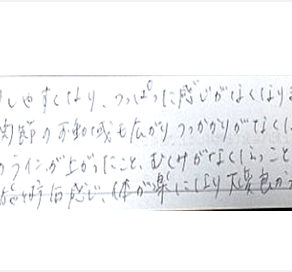 しやすくなり、つっぱった感じがなくなりま
関節の可動域も広がり つっかかりがなくな
のラインが上がったこと、むくみがなくなったこと
感じ、体が楽になり